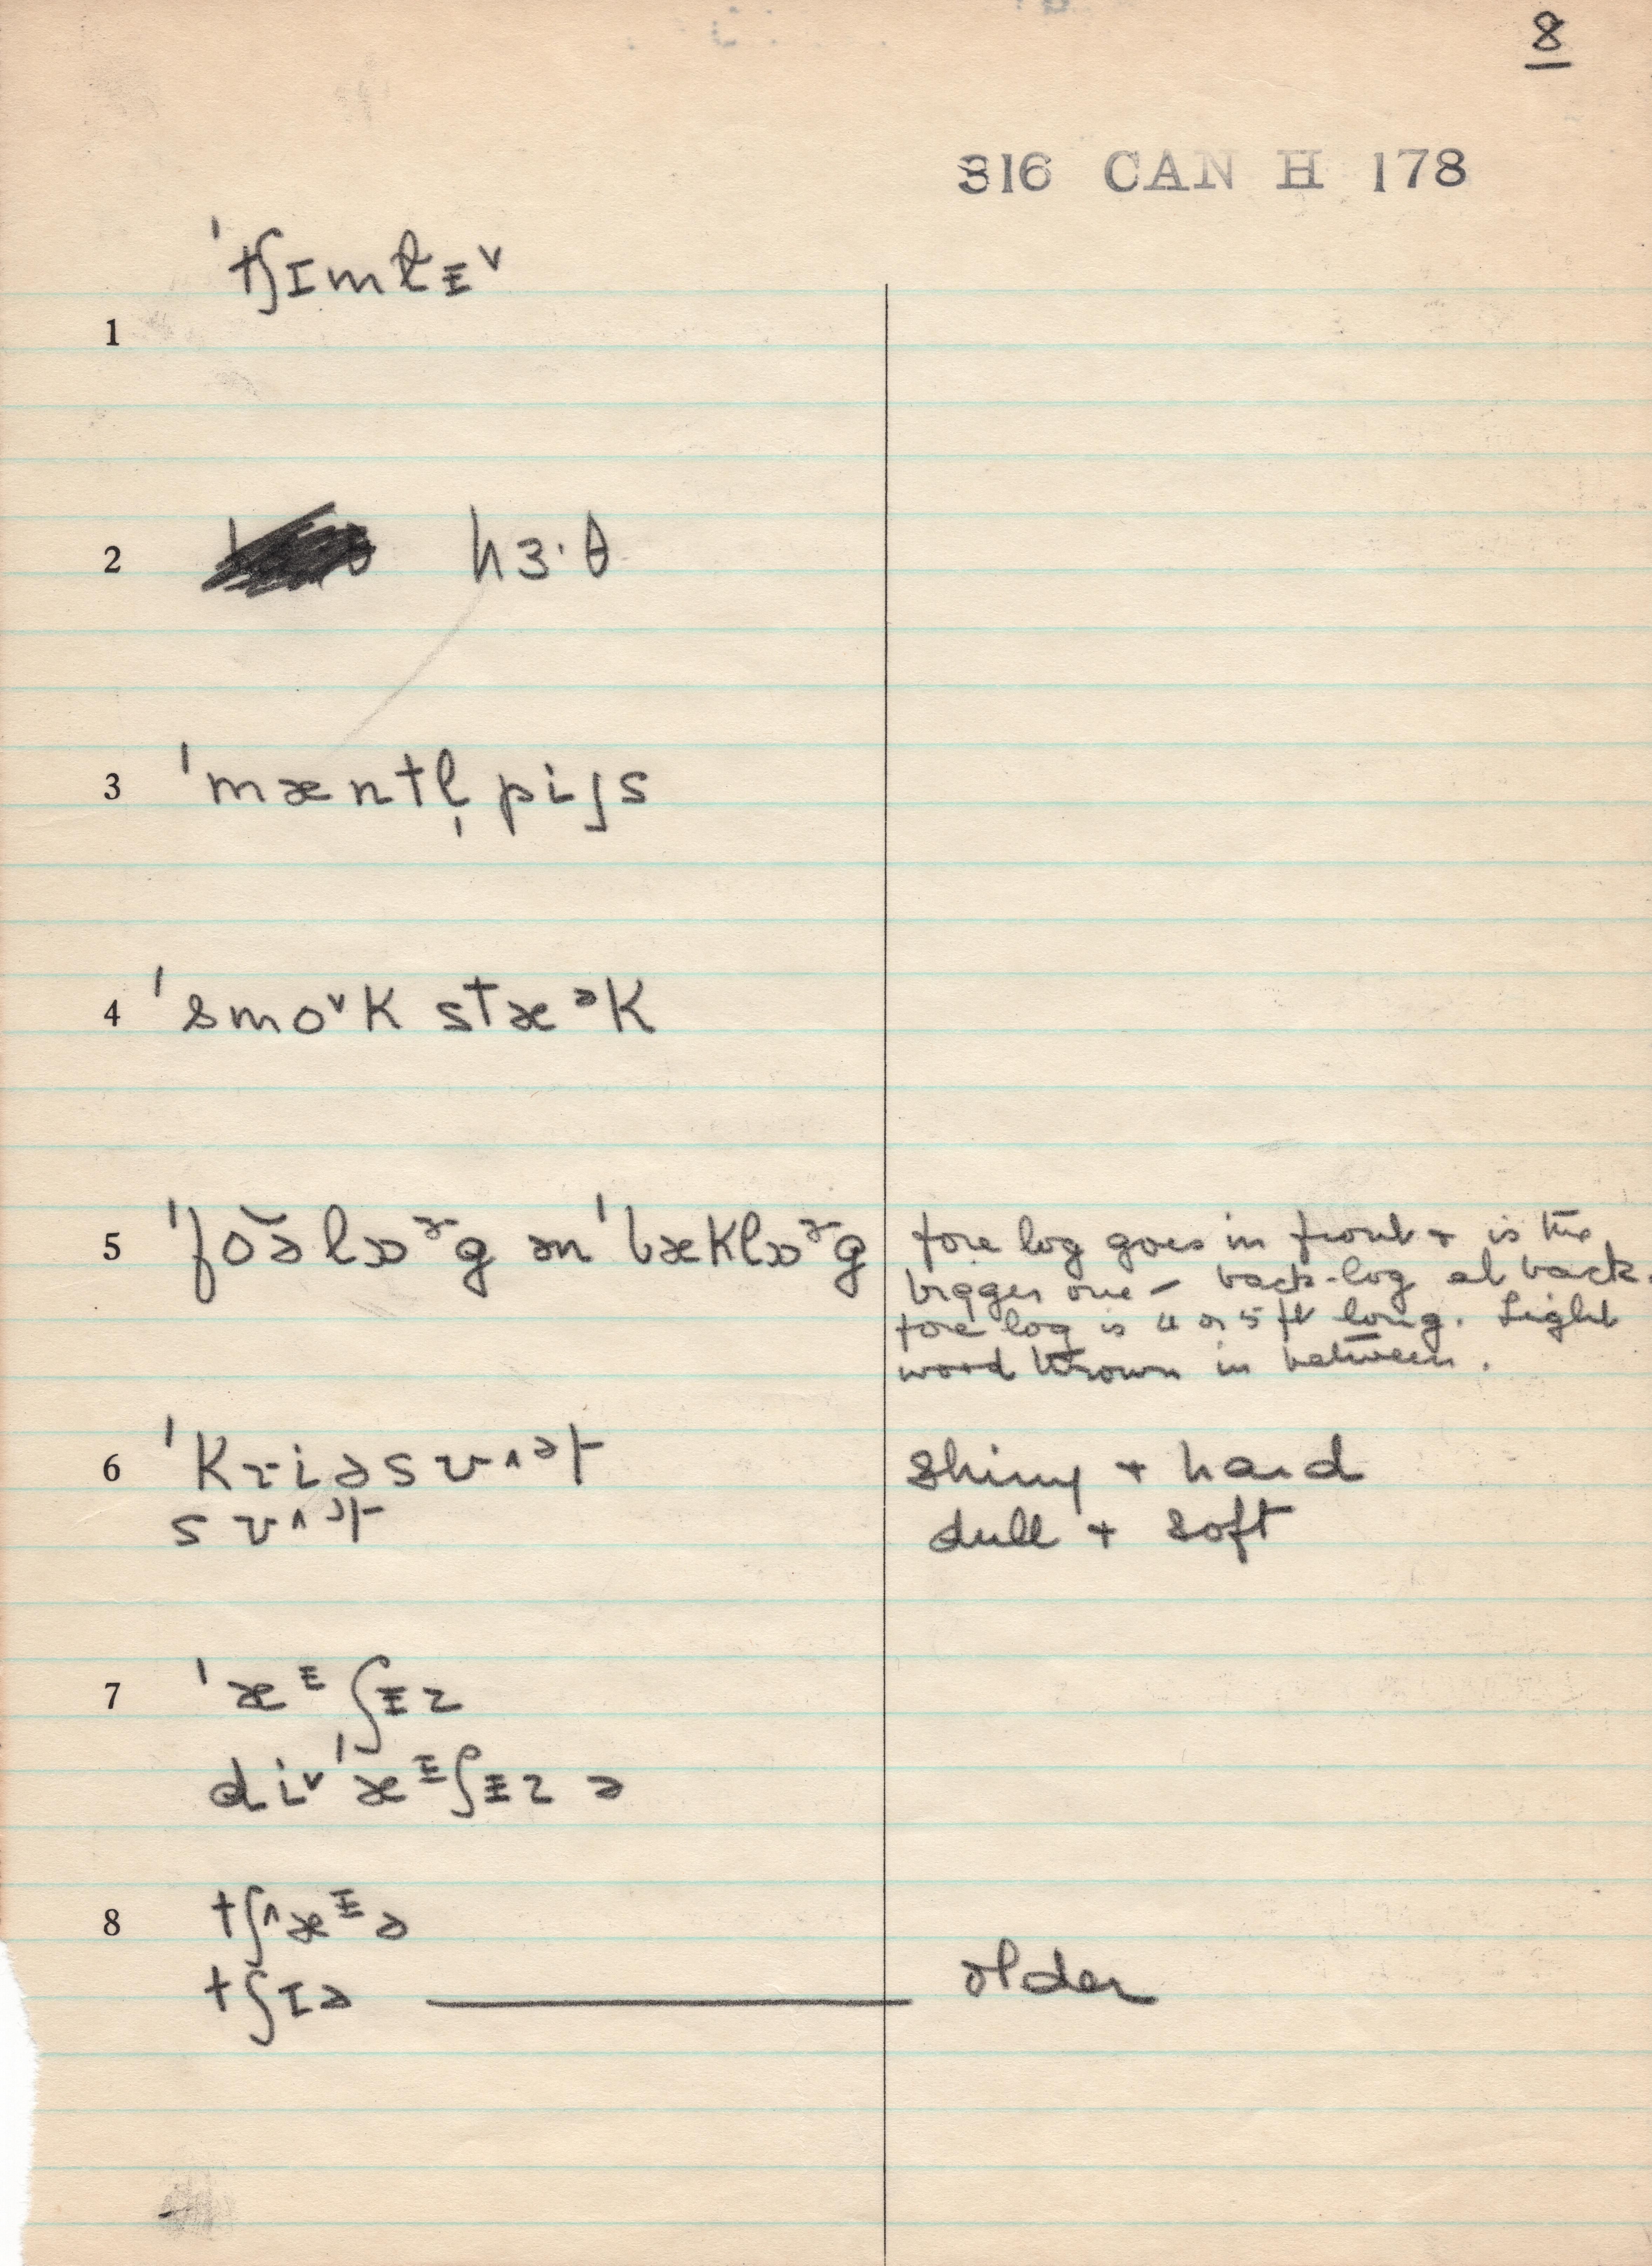 8
316 CAN H 178
1 ˈtʃɪmlɪ˅
2 hɜ·θ
3 ˈmæntl̩ piʃs
4 ˈsmo˅k stæᵊk
5 ˈfŏəlɒᵊg ən ˈbæklɒᵊg fore log goes in front + is the
bigger one – back-log at back.
fore log is 4 or 5 ft long. Light
wood thrown in between.
6 ˈkriəsʋ˄ᵊt shiny + hard
sʋ˄ᵊt dull + soft
7 ˈæᶤʃɨz
di˅ ˈæᶤʃɨz ə
8 tʃ˄æᶤə
tʃɪə — older